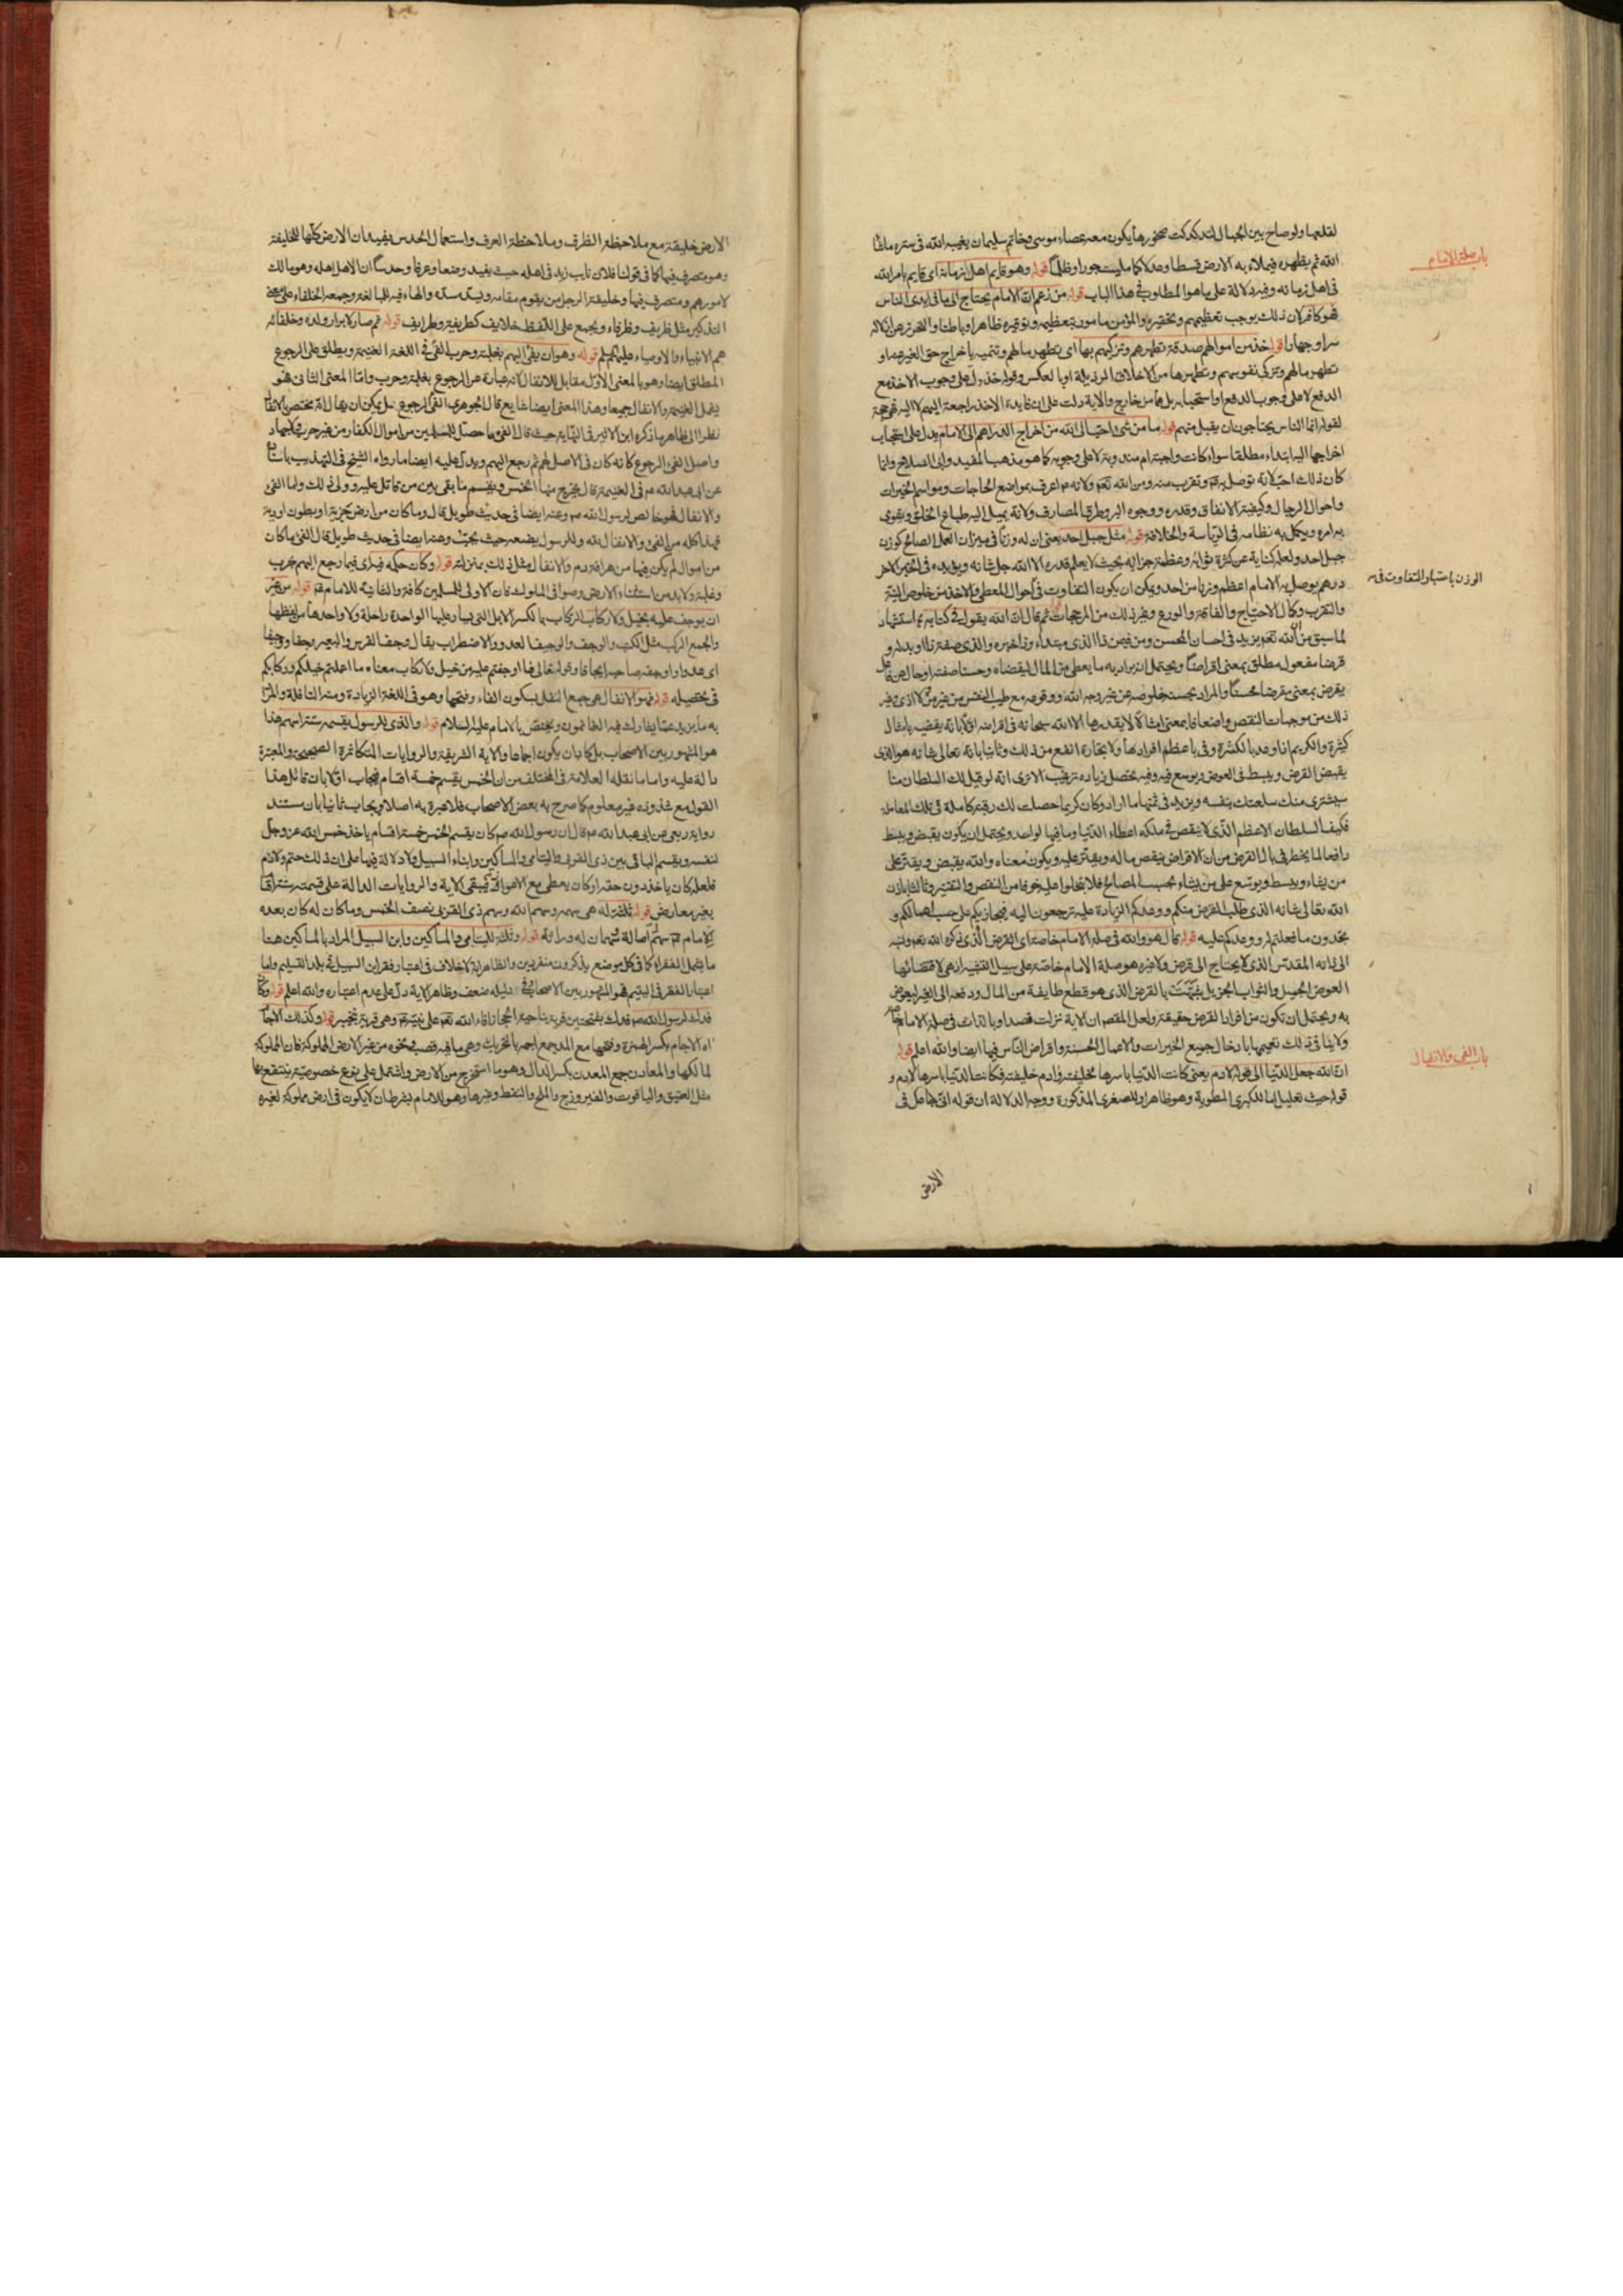 لقلعها ولو صاح بين الجبال لتدكدكت صخورها يكون معه عصاء موسى وخاتم سليمان يغيبه الله في ستره ما شاء
الله ثم يظهره فيملأ به الارض قسطا وعدلا كما ملئت جورا وظلما قوله وهو قايم اهل زمانه اى قايم بامر الله
باب صلة الامام
فى اهل زمانه وفيه دلالة على ما هو المطلوب فى هذا الباب قوله من زعم ان الامام يحتاج الى ما فى ايدى الناس
فهو كافر لان ذلك يوجب تعظيمهم وتحقيره والمؤمن مامور بتعظيمه وتوقيره ظاهرا وباطنا
سرا وجهارا قوله خذ من اموالهم صدقة تطهرهم وتزكيهم بها اى تطهر مالهم وتنميه باخراج حق الغير عنه او
تطهر مالهم وتزكى نفوسهم وتطهرها من الاخلاق الرذيلة او بالعكس وقوله خذ دل على وجوب الاخذ مع
الدفع لا على وجوب الدفع او استحبابه بل هما من خارج والاية دلت على ان فايدة الاخذ راجعة اليهم لا اليه فهو حجة
لقوله انما الناس يحتاجون ان يقبل منهم قوله ما من شىء احب الى الله من اخراج الدراهم الى الامام يدل على استحباب
اخراجها اليه ابتداء مطلقا سواء كانت واجبة ام مندوبة لا على وجوبه كما هو مذهب المفيد وابى الصلاح وانما
كان ذلك احب لانه توصل به وتقرب منه ومن الله تعالى ولانه اعرف بمواضع الحاجات ومواسم الخيرات
واحوال الرجال وكيفية الانفاق وقدره ووجوه البر وطرق المصارف ولانه يميل اليه طباع الخلق ويقوى
به امره ويكمل به نظامه فى الرياسة والخلافة قوله مثل جبل احد يعنى ان له وزنا فى ميزان العمل الصالح كوزن
جبل احد ولعله كناية عن كثرة ثوابه وعظمة جزائه بحيث لا يعلم قدره الا الله جل شانه ويؤيده فى الخبر الاخر
الوزن باعتبار التفاوت فى
درهم يوصل به الامام اعظم وزنا من احد ويمكن ان يكون التفاوت فى احوال المعطى والاخذ من خلوص النية
والتقرب وكمال الاحتياج والفاقة والورع وغير ذلك من المرجحات ثم قال ان الله يقول فى كتابه استشهاد
لما سبق من ان الله تعالى يزيد فى احسان المحسن ومن فى من ذا الذى مبتداء وذا خبره والذى صفة ذا او بدله و
قرضا مفعول مطلق بمعنى اقراضا ويحتمل ان يراد به ما يعطى من المال ليقضاه وحسنا صفته او حال عن فاعل
يقرض بمعنى مقرضا محسنا والمراد بحسنه خلوصه عن غير وجه الله ووقوعه مع طيب النفس من غير من ولا اذى وغير
ذلك من موجبات النقص واضعافا بمعنى امثالا لا يقدرها الا الله سبحانه فى اقراضه اولا بانه يقضيه بامثال
كثيرة والكريم اذا وعد بالكثرة وفى باعظم افرادها ولا تجارة انفع من ذلك وثانيا بانه تعالى شانه هو الذى
يقبض القرض ويبسط فى العوض ويوسع فيه وفيه يحصل زيادة ترغيب الا ترى انه لو قيل لك السلطان منا
سيشترى منك سلعتك بنفسه ويزيد فى ثمنها ما اراد وكان كريما حصلت لك رغبة كاملة فى تلك المعاملة
فكيف السلطان الاعظم الذى لا ينقص فى ملكه اعطاء الدنيا وما فيها لواحد ويحتمل ان يكون يقبض ويبسط
دافعا لما يخطر فى بال القرض من ان الاقراض ينقص ماله ويقتر عليه ويكون معناه والله يقبض ويقتر على
من يشاء ويبسط ويوسع على من يشاء بحسب المصالح فلا تبخلوا عليه خوفا من النقص والتقتير وثالثا بان
الله تعالى شانه الذى طلب القرض منكم ووعدكم الزيادة عليه ترجعون اليه فيجازيكم على حسب اعمالكم و
تجدون ما فعلتم له ووعدكم عليه قوله قال هو والله فى صلة الامام خاصة اى القرض الذى ذكره الله تعالى ونسبه
الى ذاته المقدس الذى لا يحتاج الى قرض ولا غيره هو صلة الامام خاصة على سبيل التشبيه اذ هى لاقتضائها
العوض الجميل والثواب الجزيل شبهت بالقرض الذى هو قطع طايفة من المال ودفعه الى الغير ليعوض
به ويحتمل ان تكون من افراد القرض حقيقة ولعل المقصود ان الاية نزلت قصدا وبالذات فى صلة الامام خاصة
ولا ينافى ذلك تعميمها بادخال جميع الخيرات والاعمال الحسنة واقراض الناس فيها ايضا والله اعلم قوله
باب الفىء والانفال
ان الله جعل الدنيا الى قوله لادم يعنى كانت الدنيا باسرها لخليفة وادم خليفة فكانت الدنيا باسرها لادم و
قوله حيث تعليل اما للكبرى المطوية وهو ظاهر او للصغرى المذكورة ووجه الدلالة ان قوله انى جاعل فى
الارض
الارض خليفة مع ملاحظة الظرف وملاحظة العرف واستعمال الحدس يفيد ان الارض كلها للخليفة
وهو متصرف فيها كما فى قولنا فلان نايب زيد فى اهله حيث يفيد وضعا وعرفا وحدسا ان الاهل اهله وهو مالك
لامورهم ومتصرف فيها وخليفة الرجل من يقوم مقامه ويسد مسده والهاء فيه للمبالغة وجمعه الخلفاء على معنى
التذكير مثل ظريف وظرفاء ويجمع على اللفظ خلايف كظريفة وظرايف قوله ثم صار لابرار ولده وخلفائه
هم الانبياء والاوصياء عليهم السلم قوله وهو ان يفىء اليهم بغلبة وحرب الفىء فى اللغة الغنيمة ويطلق على الرجوع
المطلق ايضا وهو بالمعنى الاول مقابل للانفال لانه عبارة عن الرجوع بغلبة وحرب واما المعنى الثانى فهو
يشمل الغنيمة والانفال جميعا وهذا المعنى ايضا شايع قال الجوهرى الفىء الرجوع بل يمكن ان يقال انه مختص بالانفال
نظرا الى ظاهر ما ذكره ابن الاثير فى النهاية حيث قال الفىء ما حصل للمسلمين من اموال الكفار من غير حرب ولا جهاد
واصل الفىء الرجوع كانه كان فى الاصل لهم ثم رجع اليهم ويدل عليه ايضا ما رواه الشيخ فى التهذيب باسناده
عن ابى عبد الله ع فى الغنيمة قال يخرج منها الخمس ويقسم ما بقى بين من قاتل عليه وولى ذلك واما الفىء
والانفال فهو خالص لرسول الله ص وعنه ايضا فى حديث طويل قال وما كان من ارض خربة او بطون اودية
فهذا كله من الفىء والانفال لله وللرسول يضعه حيث يحب وعنه ايضا فى حديث طويل قال الفىء ما كان
من اموال لم يكن فيها من هراقة دم والانفال مثل ذلك بمنزلته قوله وكان حكمه فيه اى فيما رجع اليهم بحرب
وغلبة ولا بد من استثناء الارض وصوافى الملوك فان الاولى للمسلمين كافة والثانية للامام قوله من غير
ان يوجف عليه بخيل ولا ركاب الركاب بالكسر الابل التى يسار عليها الواحدة راحلة ولا واحد لها من لفظها
والجمع الركب مثل الكتب والوجف والوجيف العدو والاضطراب يقال وجف الفرس والبعير وجفا ووجيفا
اى عدا واوجفه صاحبه ايجافا وقوله تعالى فما اوجفتم عليه من خيل ولا ركاب معناه ما اعملتم خيلكم وركابكم
فى تحصيله قوله فهو الانفال هى جمع النفل بسكون الفاء وفتحها وهو فى اللغة الزيادة ومنه النافلة والمراد
به ما يزيد عما يشارك فيه الغانمون ويختص بالامام عليه السلام قوله والذى للرسول يقسمه ستة اسهم هذا
هو المشهور بين الاصحاب بل كاد ان يكون اجماعا والاية الشريفة والروايات المتكاثرة الصحيحة والمعتبرة
دالة عليه واما ما نقله العلامة فى المختلف من ان الخمس يقسم خمسة اقسام فيجاب اولا بان قائل هذا
القول مع شذوذه غير معلوم كما صرح به بعض الاصحاب فلا عبرة به اصلا ويجاب ثانيا بان مستنده
رواية ربعى عن ابى عبد الله ع قال ان رسول الله ص كان يقسم الخمس خمسة اقسام ياخذ خمس الله عز وجل
لنفسه ويقسم الباقى بين ذى القربى واليتامى والمساكين وابناء السبيل ولا دلالة فيها على ان ذلك حتم ولازم
فلعله كان ياخذ دون حقه او كان يعطى مع الاعواز فيبقى الاية والروايات الدالة على قسمته ستة اقسام
بغير معارض قوله ثلثة له هى سهمه وسهم الله وسهم ذى القربى نصف الخمس وما كان له كان بعده
للامام سهم اصالة وسهمان له وراثة قوله وثلثة لليتامى والمساكين وابن السبيل المراد بالمساكين هنا
ما يشمل الفقراء كما فى كل موضع يذكرون منفردين والظاهر انه لا خلاف فى اعتبار فقر ابن السبيل فى بلد التسليم واما
اعتبار الفقر فى اليتيم فهو المشهور بين الاصحاب وفى دليله ضعف وظاهر الاية دل على عدم اعتباره والله اعلم قوله وكان
فدك لرسول الله ص فدك بفتحتين قرية بناحية الحجاز افاء الله تعالى على نبيه وهى قرية بخيبر قوله وكذلك الاجام
اه الاجام بكسر الهمزة وفتحها مع المد جمع اجمة بالتحريك وهى ما فيه قصب ونحوه من غير الارض المملوكة فان المملوكة
لمالكها والمعادن جمع المعدن بكسر الدال وهو ما استخرج من الارض واشتمل على نوع خصوصية ينتفع بها
مثل العقيق والياقوت والفيروزج والملح والنفط وغيرها وهو للامام بشرط ان لا يكون فى ارض مملوكة لغيره